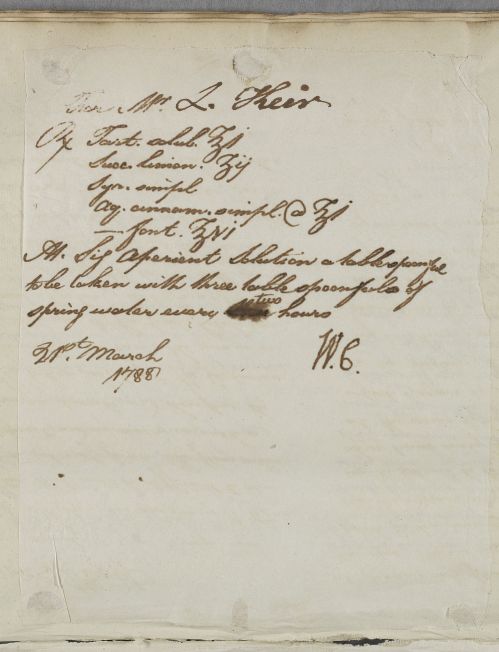 For Mr. L. Keir
℞ Tart. solub. ℥j
Succ. limon. ℥ij
Syr. simpl
Aq. cinnam. simpl. @ ℥j
— font. ℥vj
M. Sig Aperient Solution a tablespoonful
to be taken with three tablespoonfuls of
spring water every two hours
21st. March
1788
W.C.